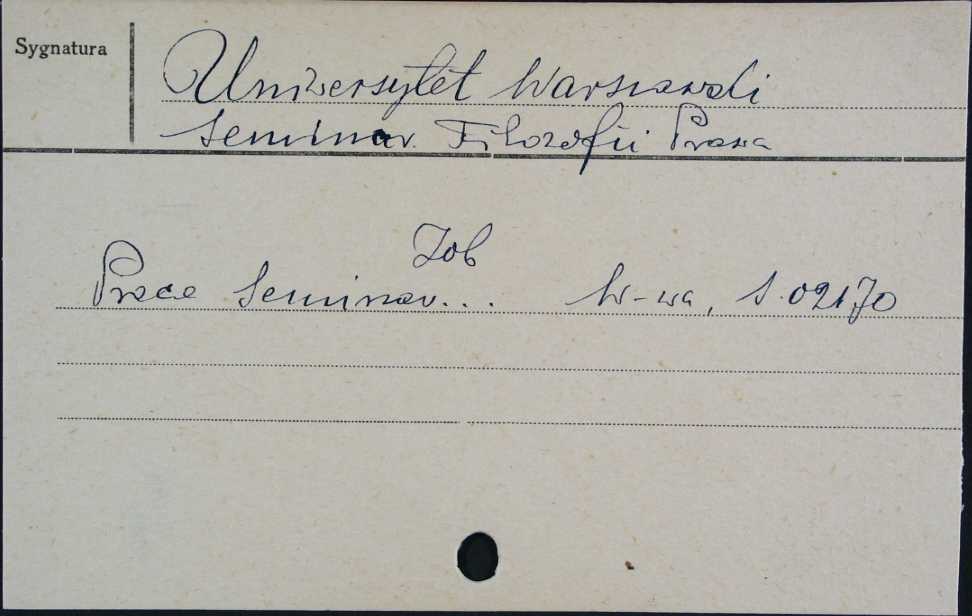 Sygnatura
Uniwersytet Warszawski
Seminar. Filozofii Prawa
Zob
Prace Seminar... W-wa, S.02170